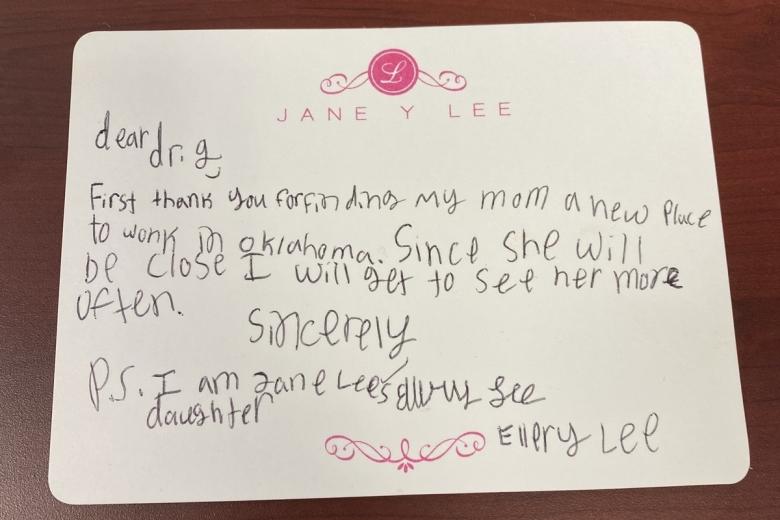 L
JANE Y LEE
dear dr. g
First thank you for finding my mom a new place
to work in oklahoma. Since she will
be close I will get to see her more
often.
Sincerely
P.S. I am Jane Lee's Ellery Lee
daughter
Ellery Lee